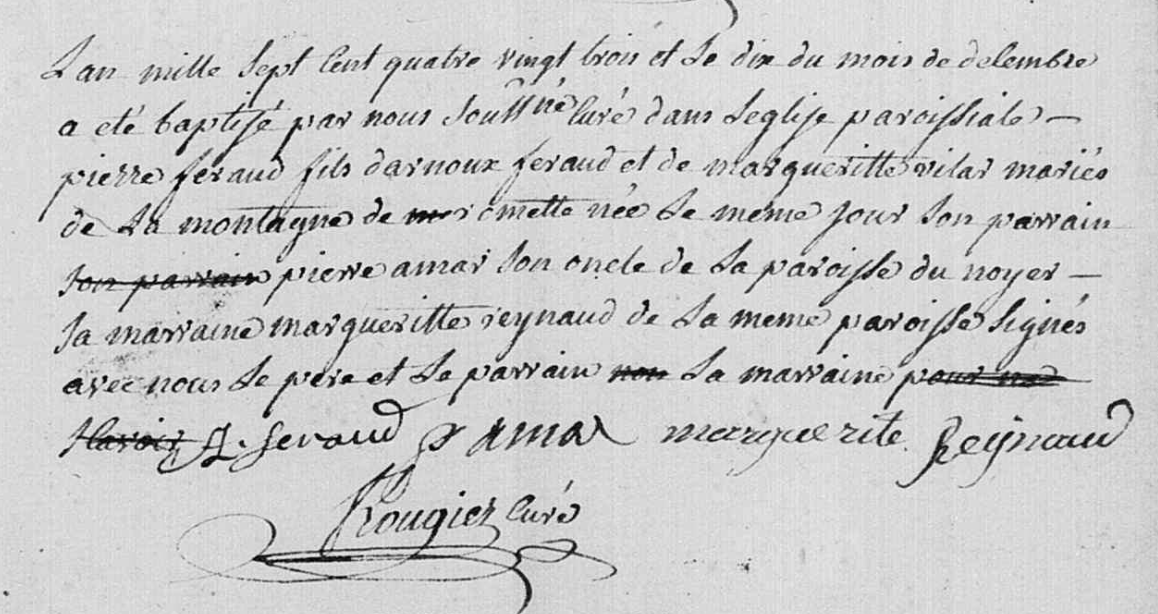 L'an mille sept cent quatre vingt trois et le dix du mois de decembre
a eté baptisé par nous soussné curé dans l'eglise paroissiale –
pierre feraud fils d'arnoux feraud et de margueritte vilar mariés
de La montagne de romette née Le meme jour son parrain
son parrain pierre amar son oncle de La paroisse du noyer –
sa marraine margueritte reynaud de La meme paroisse signés
avec nous Le pere et Le parrain non La marraine pour ne
sçavoir A. feraud p amar marguerite Reynaud
Rougier curé